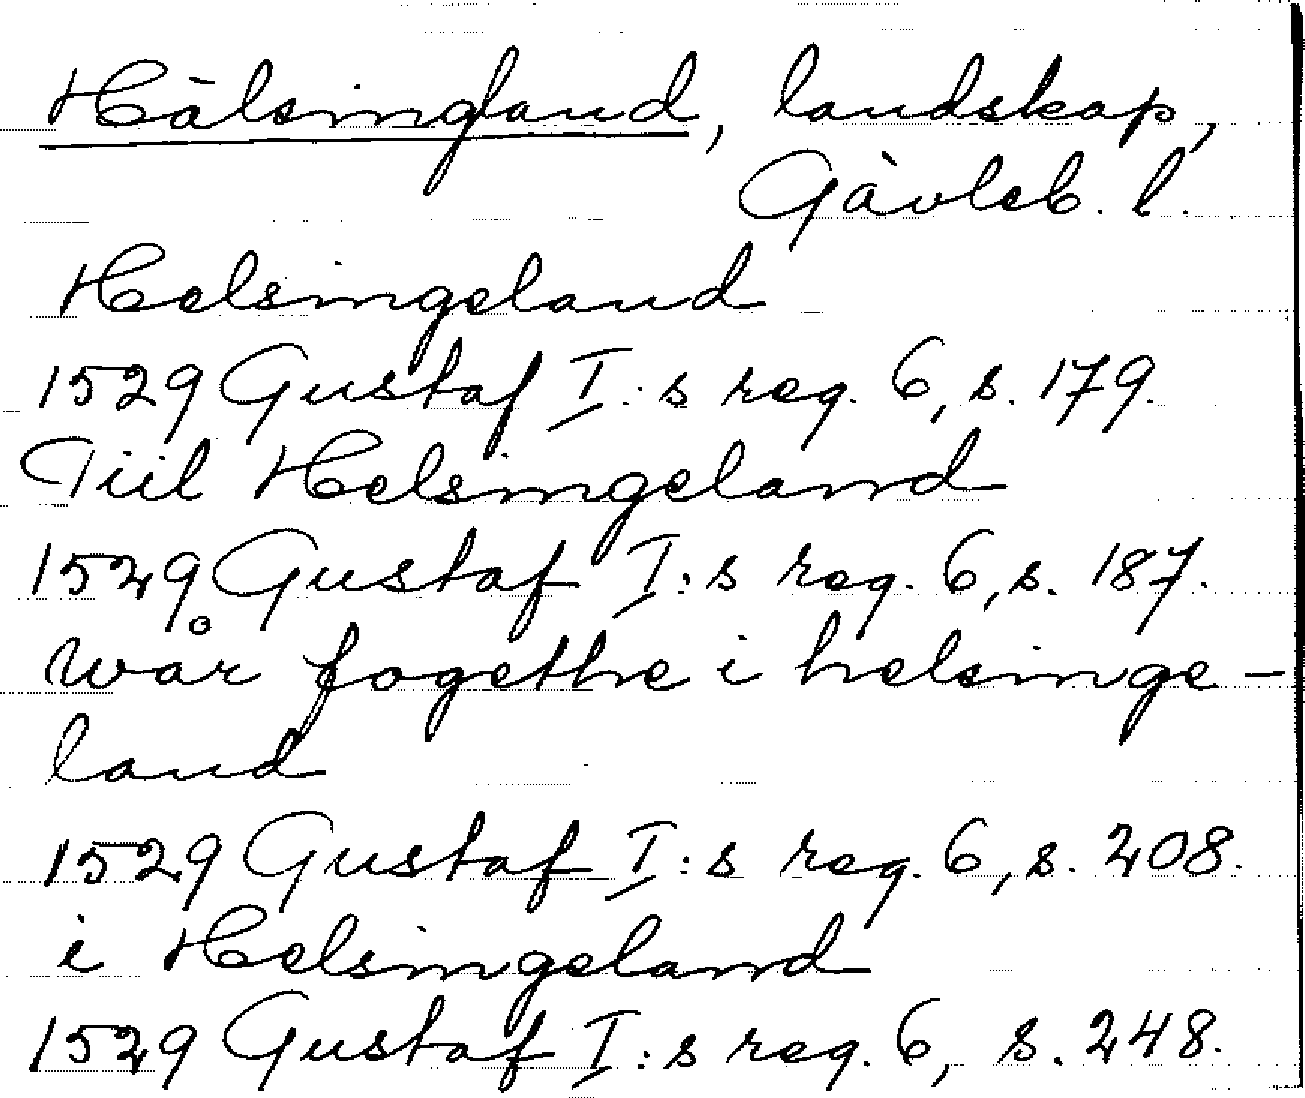 Hälsingland, landskap,
Gävleb. l.
Helsingeland
1529 Gustaf I:s reg. 6, s. 179.
Tiil Helsingeland
1529 Gustaf I:s reg. 6, s. 187.
wår fogethe i helsinge-
land
1529 Gustaf I:s reg. 6, s. 208.
i Helsingeland
1529 Gustaf I:s reg. 6, s. 248.